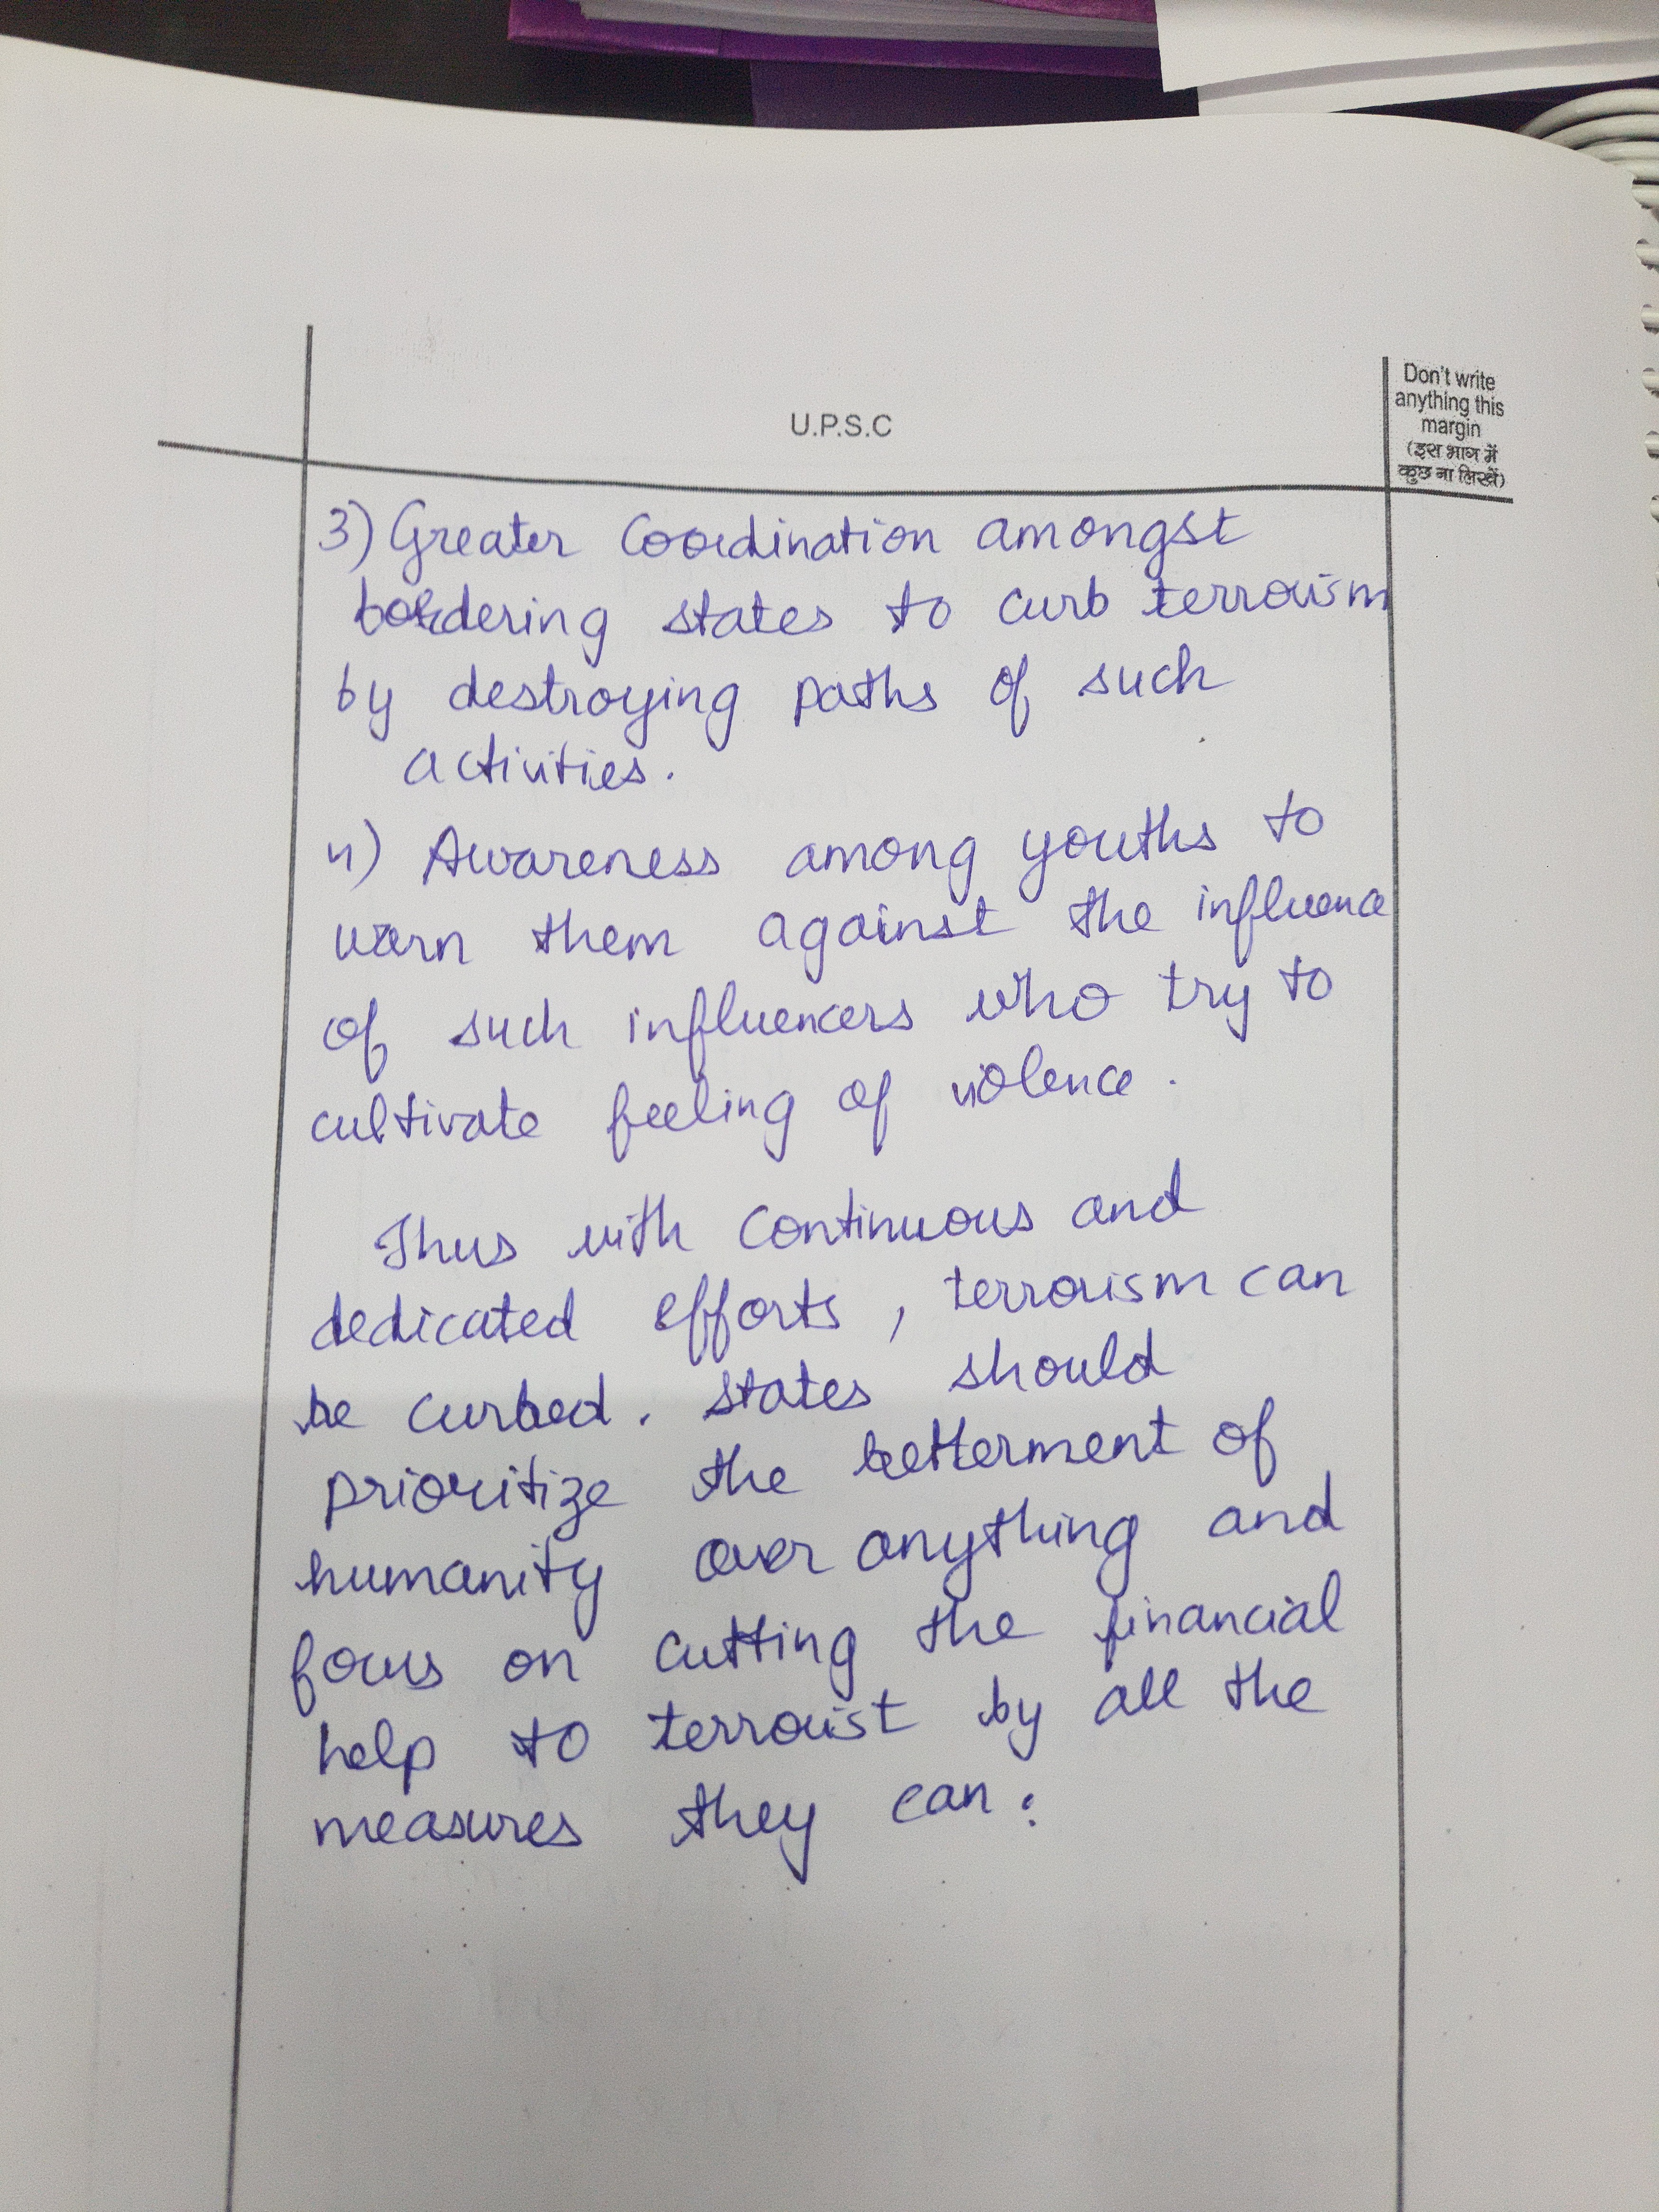 U.P.S.C
Don't write
anything this
margin
(इस भाग में
कुछ ना लिखें)
3) Greater Coordination amongst
bordering states to curb terrorism
by destroying paths of such
activities.
4) Awareness among youths to
warn them against the influence
of such influencers who try to
cultivate feeling of violence.
Thus with continuous and
dedicated efforts, terrorism can
be curbed. States should
prioritize the betterment of
humanity over anything and
focus on cutting the financial
help to terrorist by all the
measures they can.